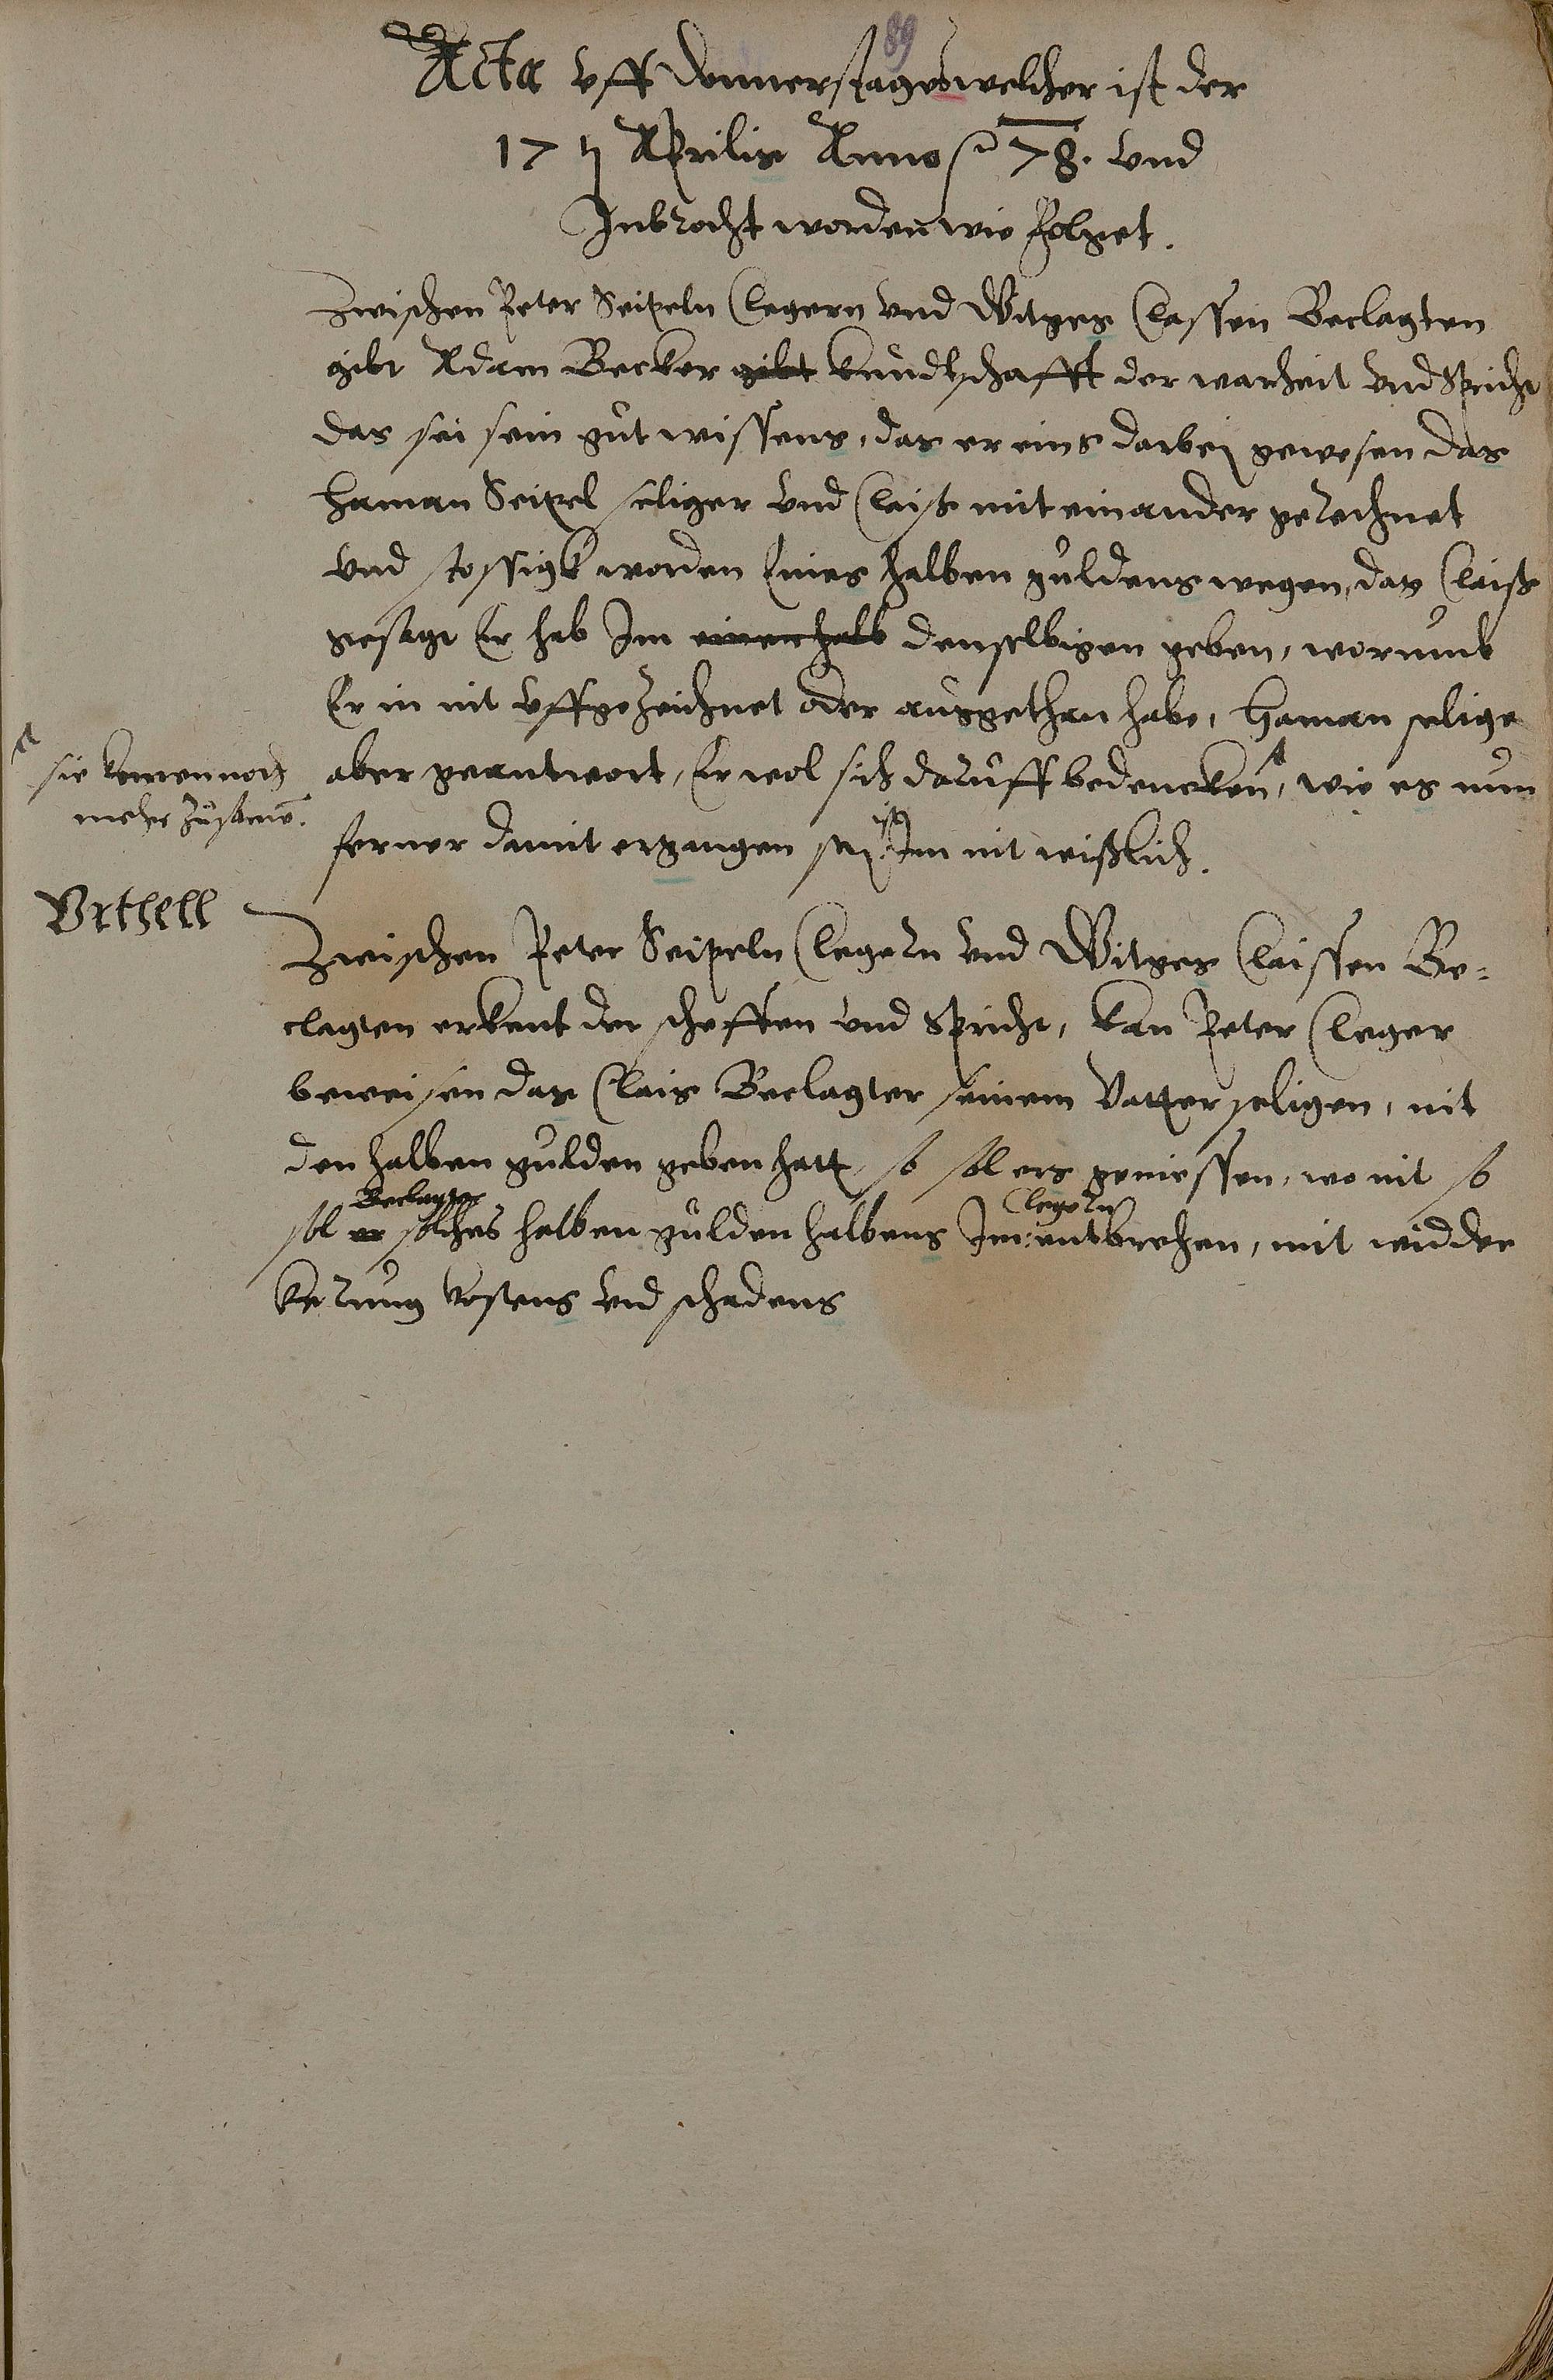 89
Acta vff Donnerstage welcher ist der
17 Aprilis Anno 78. vnd
Inbrocht worden wie folget.
Zwischen Peter Seipeln Clegern vnd Witges Classen Beclagten
gibt Adam Becker gibt kundtschafft der warheit vnd spricht
das sei sein gut wissens, das er eins darbej gewesen das
Haman Seipel seliger vnd Claiß mit einander gerechnet
vnd stossigk worden Eines halben guldens wegen, das Claiß
gesagt Er hab Im einen halb denselbigen geben, worumb
Er in nit vffgezeichnet oder ausgethan habe, Haman selige
aber geantwort, Er wol sich daruff bedencken, wie es nun
sie komen noch
mehr zusamē.
ferner damit ergangen sej ist Im nit wißlich.
Vrthell
Zwischen Peter Seipeln Clegern vnd Witges Claissen Be-
clagten erkent der scheffen vnd spricht, kan Peter Cleger
beweisen das Clais Beclagter seinem Vatter seligen, nit
den halben gulden geben hatt, so sol ers geniessen, wo nit so
Beclagter
Clegern
sol er solches halben gulden halbens Im entbrechen, mit widder
kerung kostens vnd schadens